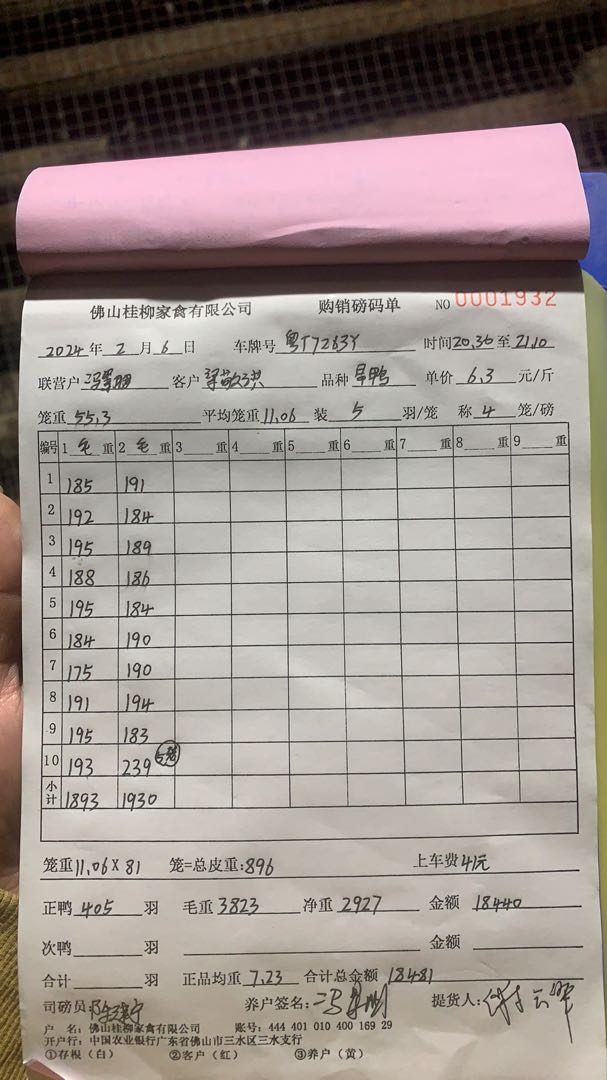 佛山桂柳家禽有限公司 购销磅码单 NO 0001932
2024年2月6日 车牌号 粤T7283Y 时间20.30至21.10
联营户 客户 品种 旱鸭 单价 6.3 元/斤
笼重 55.3 平均笼重 11.06 装 5 羽/笼 称 4 笼/磅
编号 1 毛 重 2 毛 重 3 重 4 重 5 重 6 重 7 重 8 重 9 重
1 185 191
2 192 184
3 195 189
4 188 186
5 195 184
6 184 190
7 175 190
8 191 194
9 195 183
10 193 239 5笼
小计 1893 1930
笼重 11.06 X 81 笼=总皮重:896 上车费 41元
正鸭 405 羽 毛重 3823 净重 2927 金额 18440
次鸭 羽 金额
合计 羽 正品均重 7.23 合计总金额 18481
司磅员 养户签名: 提货人:
户 名: 佛山桂柳家禽有限公司 账号: 444 401 010 400 169 29
开户行: 中国农业银行广东省佛山市三水区三水支行
①存根(白) ②客户(红) ③养户(黄)